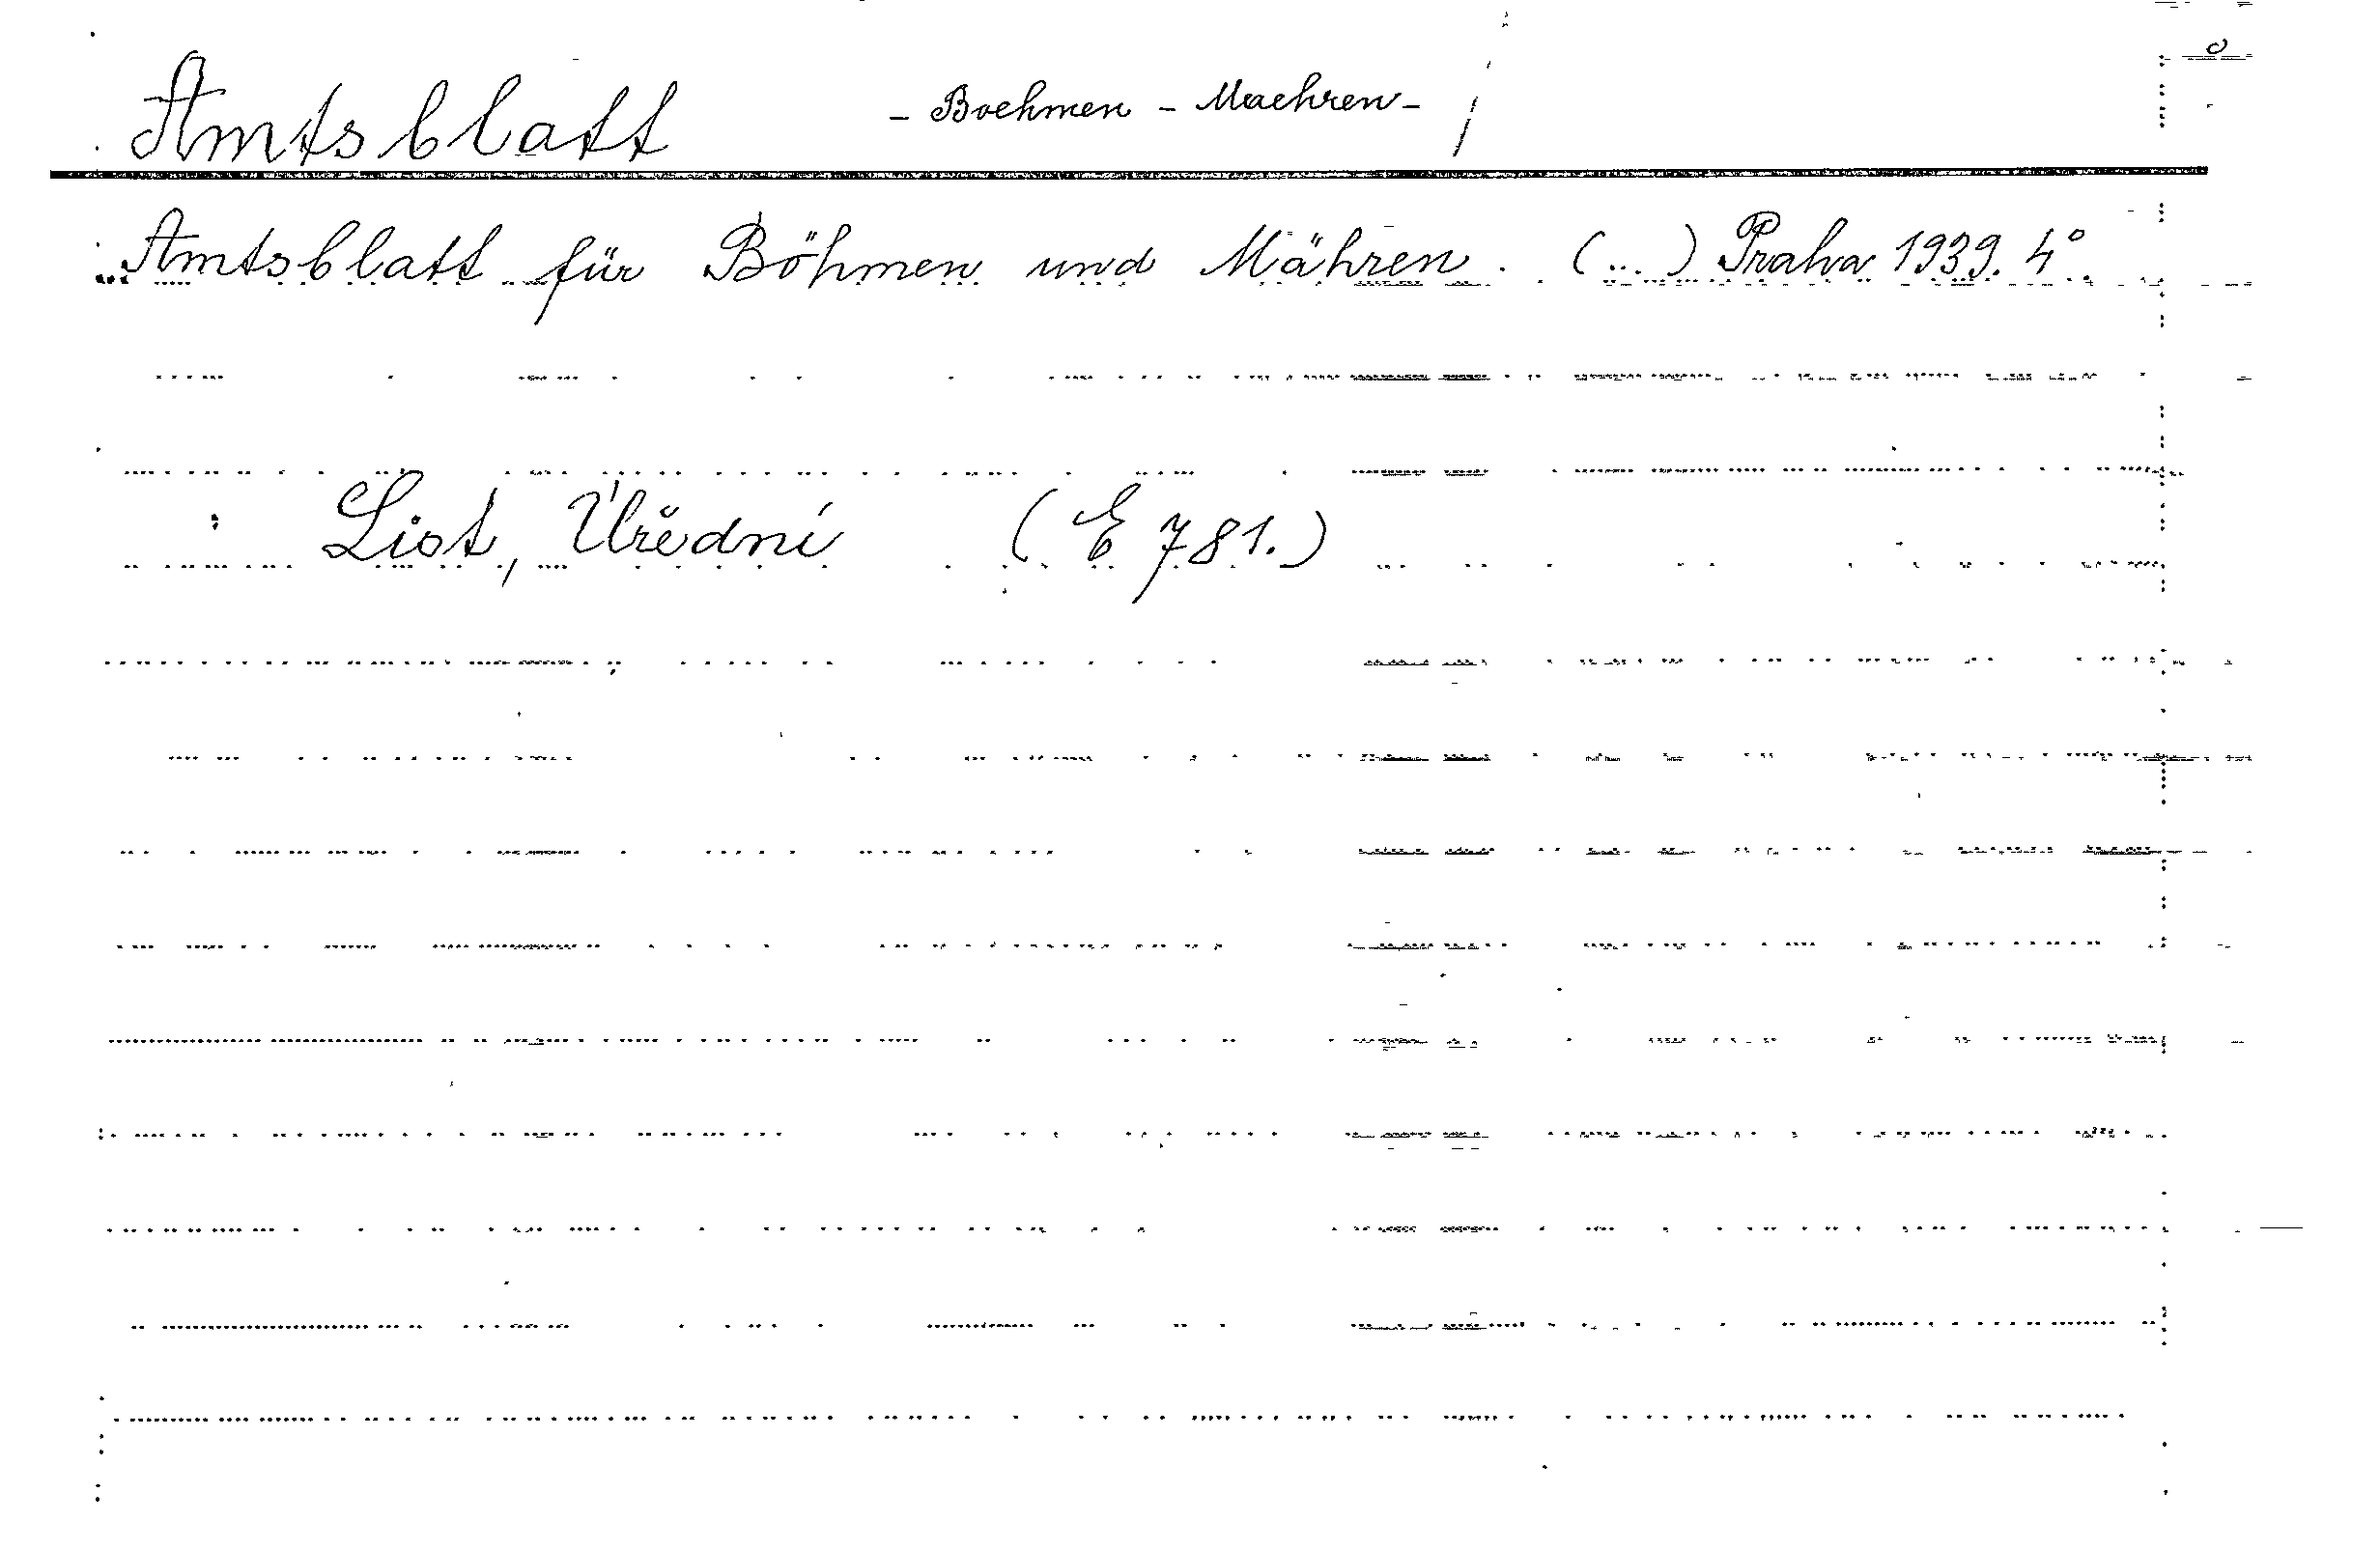 Amtsblatt - Boehmen - Maehren -
Amtsblatt für Böhmen und Mähren. (...) Praha 1939. 4°.
: List, Úřední (E 781.)